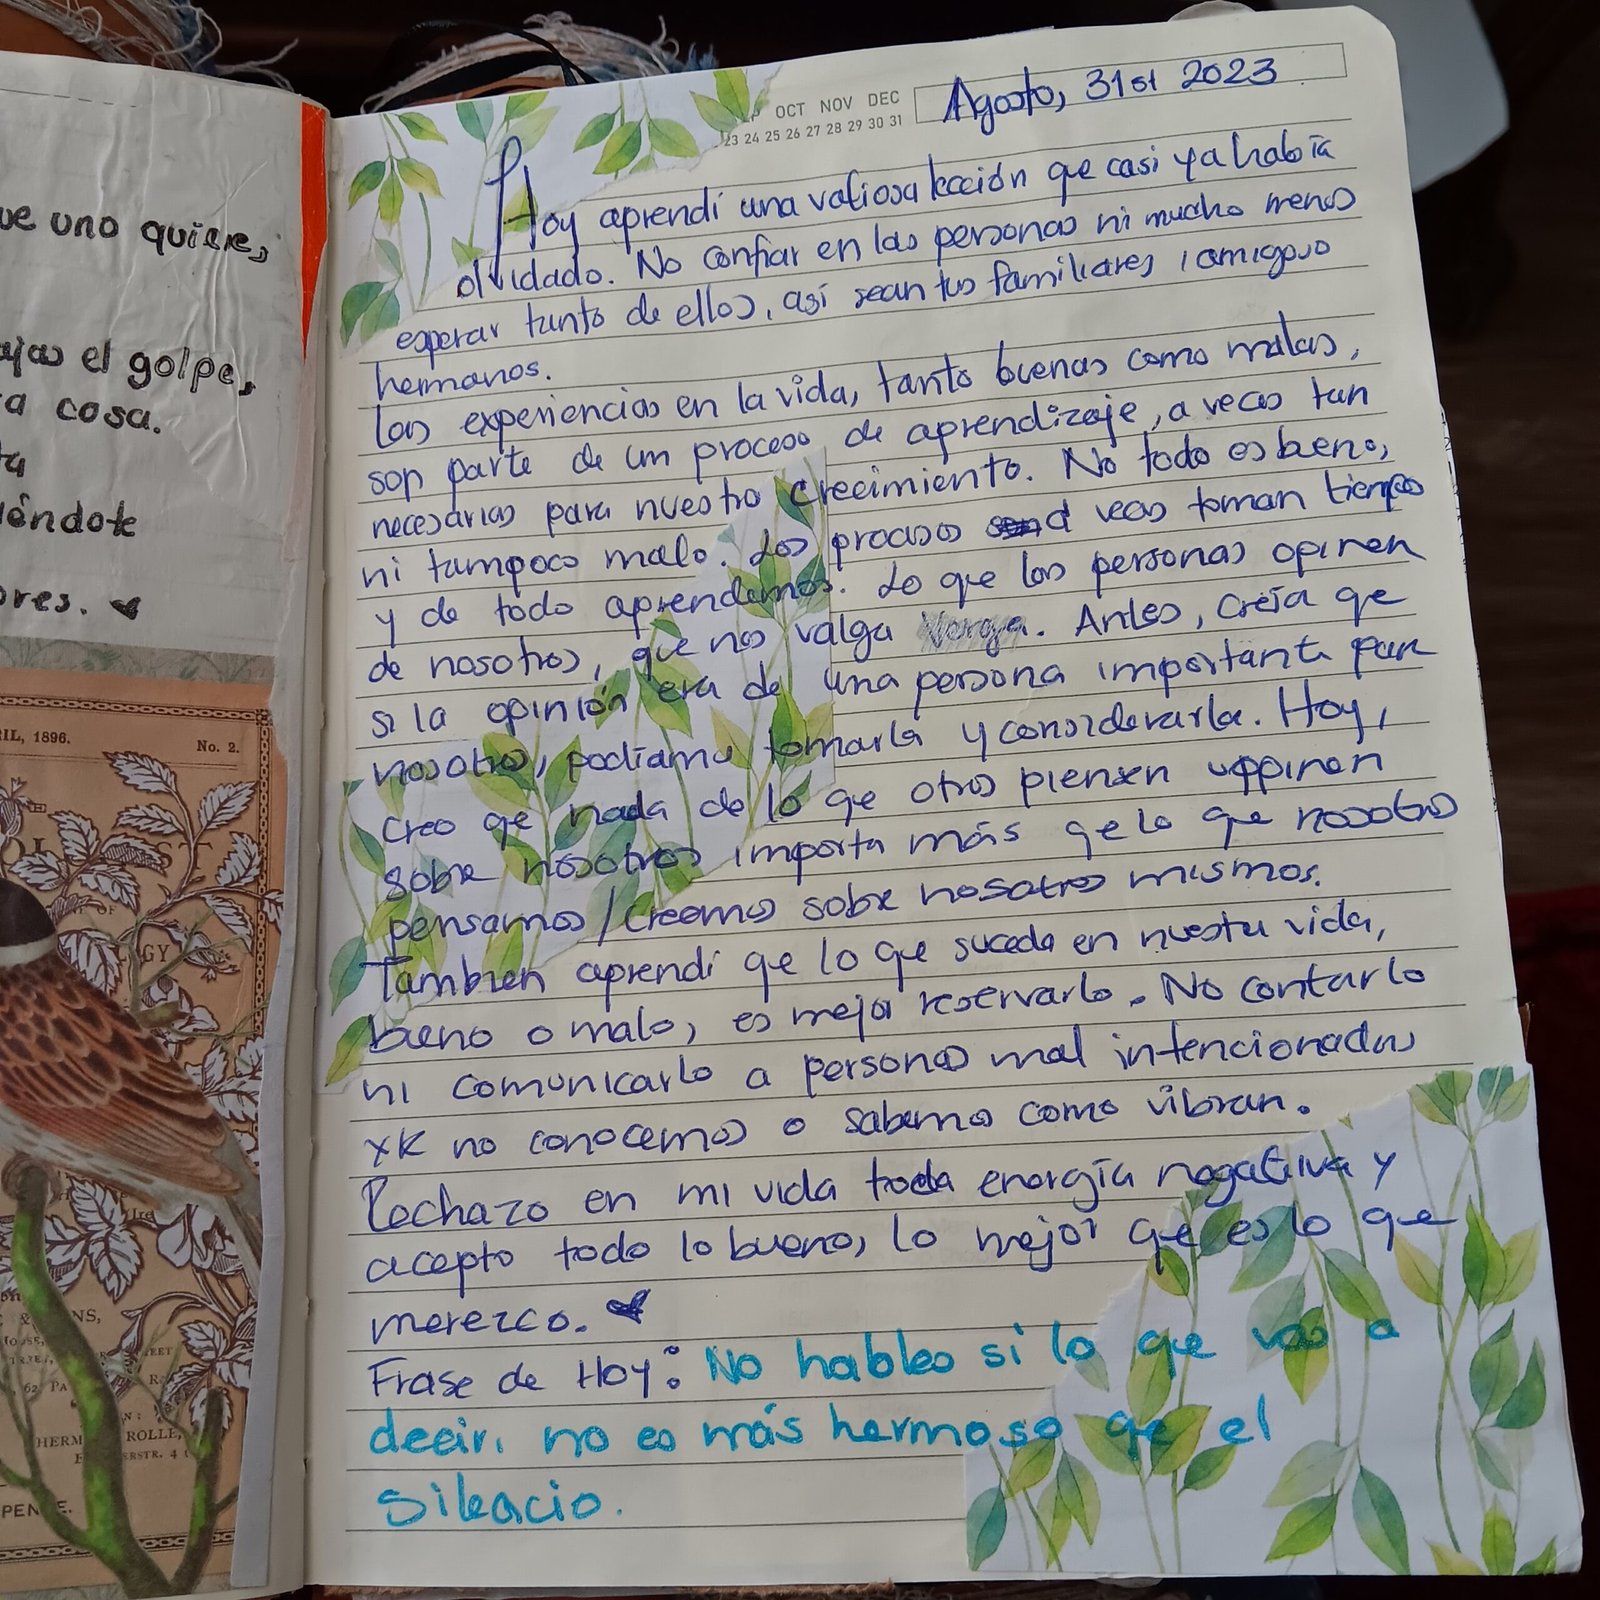 ue uno quiere,
ajas el golpe,
a cosa.
ta
iéndote
ores.
RIL, 1896.
No. 2.
GY
NS,
HERM ROLLE,
ERSTR. 4
PENCE.
OCT NOV DEC
23 24 25 26 27 28 29 30 31
Agosto, 31st 2023
Hoy aprendí una valiosa lección que casi ya había
olvidado. No confiar en las personas ni mucho menos
esperar tanto de ellos, así sean tus familiares, amigos o
hermanos.
Las experiencias en la vida, tanto buenas como malas,
son parte de un proceso de aprendizaje, a veces tan
necesarias para nuestro crecimiento. No todo es bueno,
ni tampoco malo. Los procesos a veces toman tiempo
y de todo aprendemos. Lo que las personas opinen
de nosotros, que nos valga Verga. Antes, creía que
si la opinión era de una persona importante para
nosotros, podíamos tomarla y considerarla. Hoy,
creo qe nada de lo qe otros piensen u opinen
sobre nosotros importa más qe lo que nosotros
pensamos/creemos sobre nosotros mismos.
Tambien aprendí qe lo que suceda en nuestra vida,
bueno o malo, es mejor reservarlo. No contarlo
ni comunicarlo a personas mal intencionadas
xk no conocemos o sabemos como vibran.
Rechazo en mi vida toda energía negativa y
acepto todo lo bueno, lo mejor qe es lo que
merezco.
Frase de Hoy: No hables si lo que vas a
decir, no es más hermoso qe el
silencio.